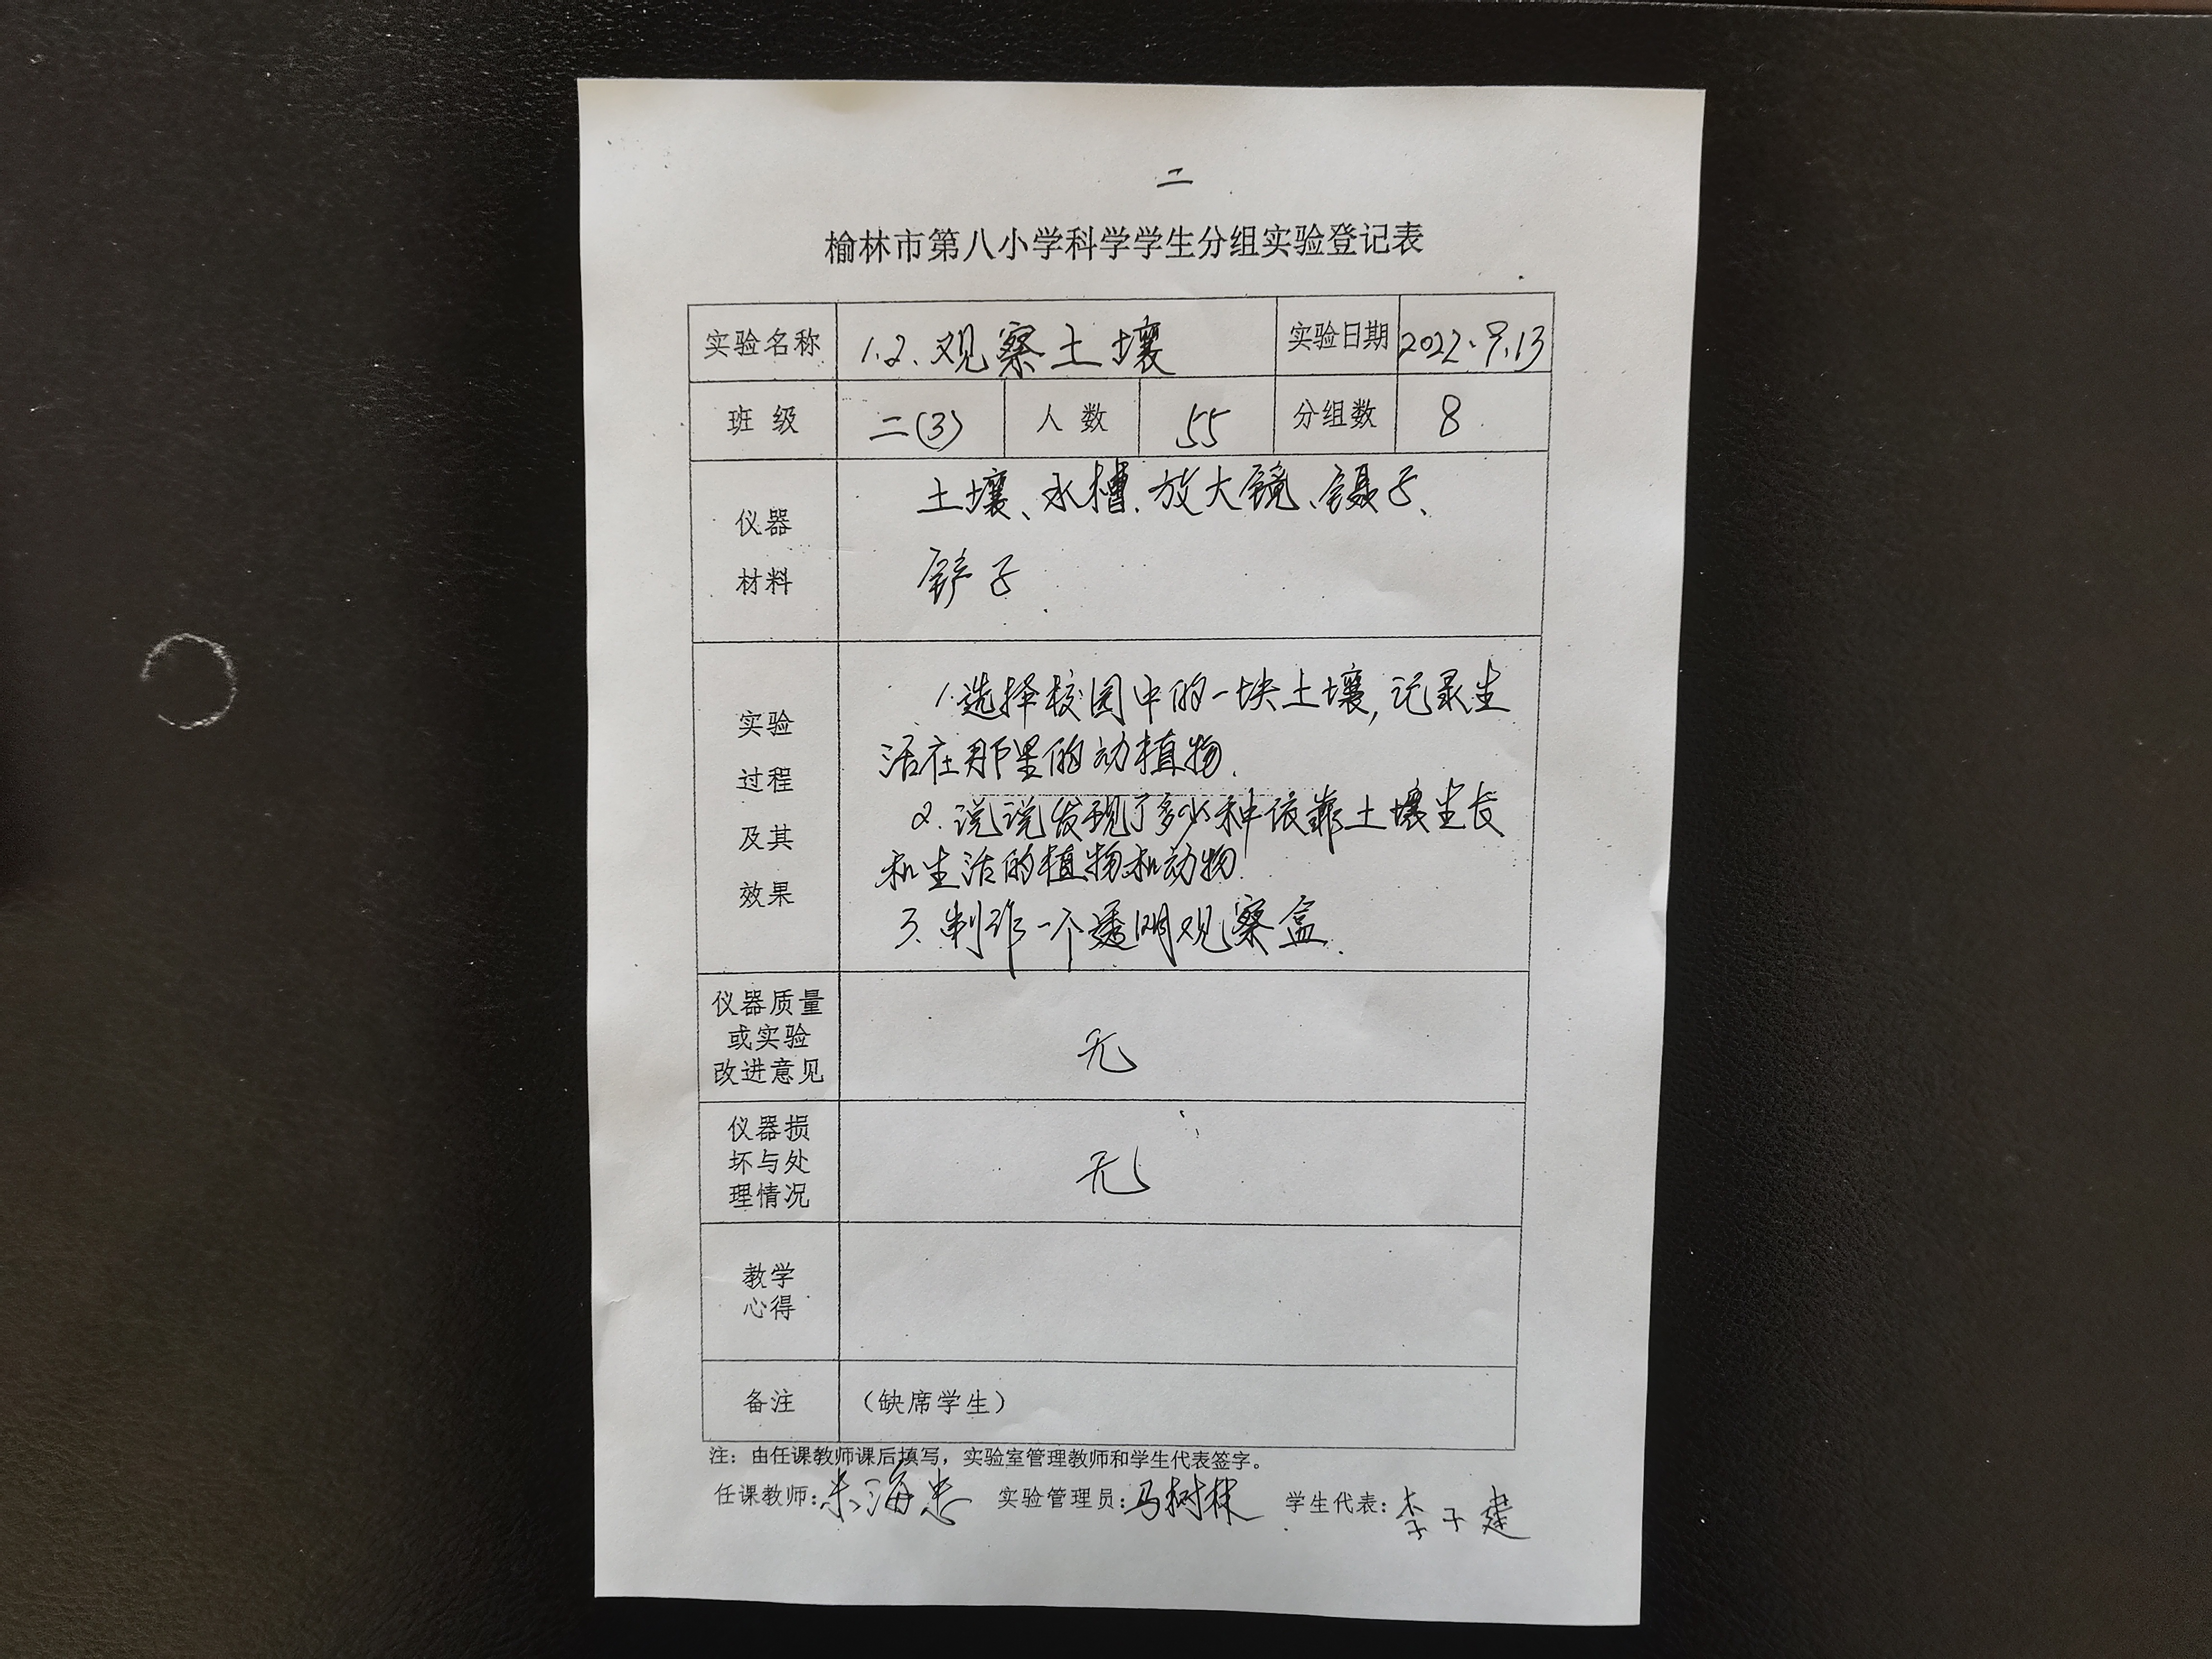 二
榆林市第八小学科学学生分组实验登记表
实验名称 1.2.观察土壤 实验日期 2022.9.13
班 级 二(3) 人 数 55 分组数 8
仪器
材料
土壤、水槽.放大镜、镊子、
铲子
实验
过程
及其
效果
1.选择校园中的一块土壤,记录生
活在那里的动植物.
2.说说发现了多少种依靠土壤生长
和生活的植物和动物.
3.制作一个透明观察盒.
仪器质量
或实验
改进意见
无
仪器损
坏与处
理情况
无
教学
心得
备注 （缺席学生）
注：由任课教师课后填写，实验室管理教师和学生代表签字。
任课教师:朱海忠 实验管理员:马树林 学生代表:李子建